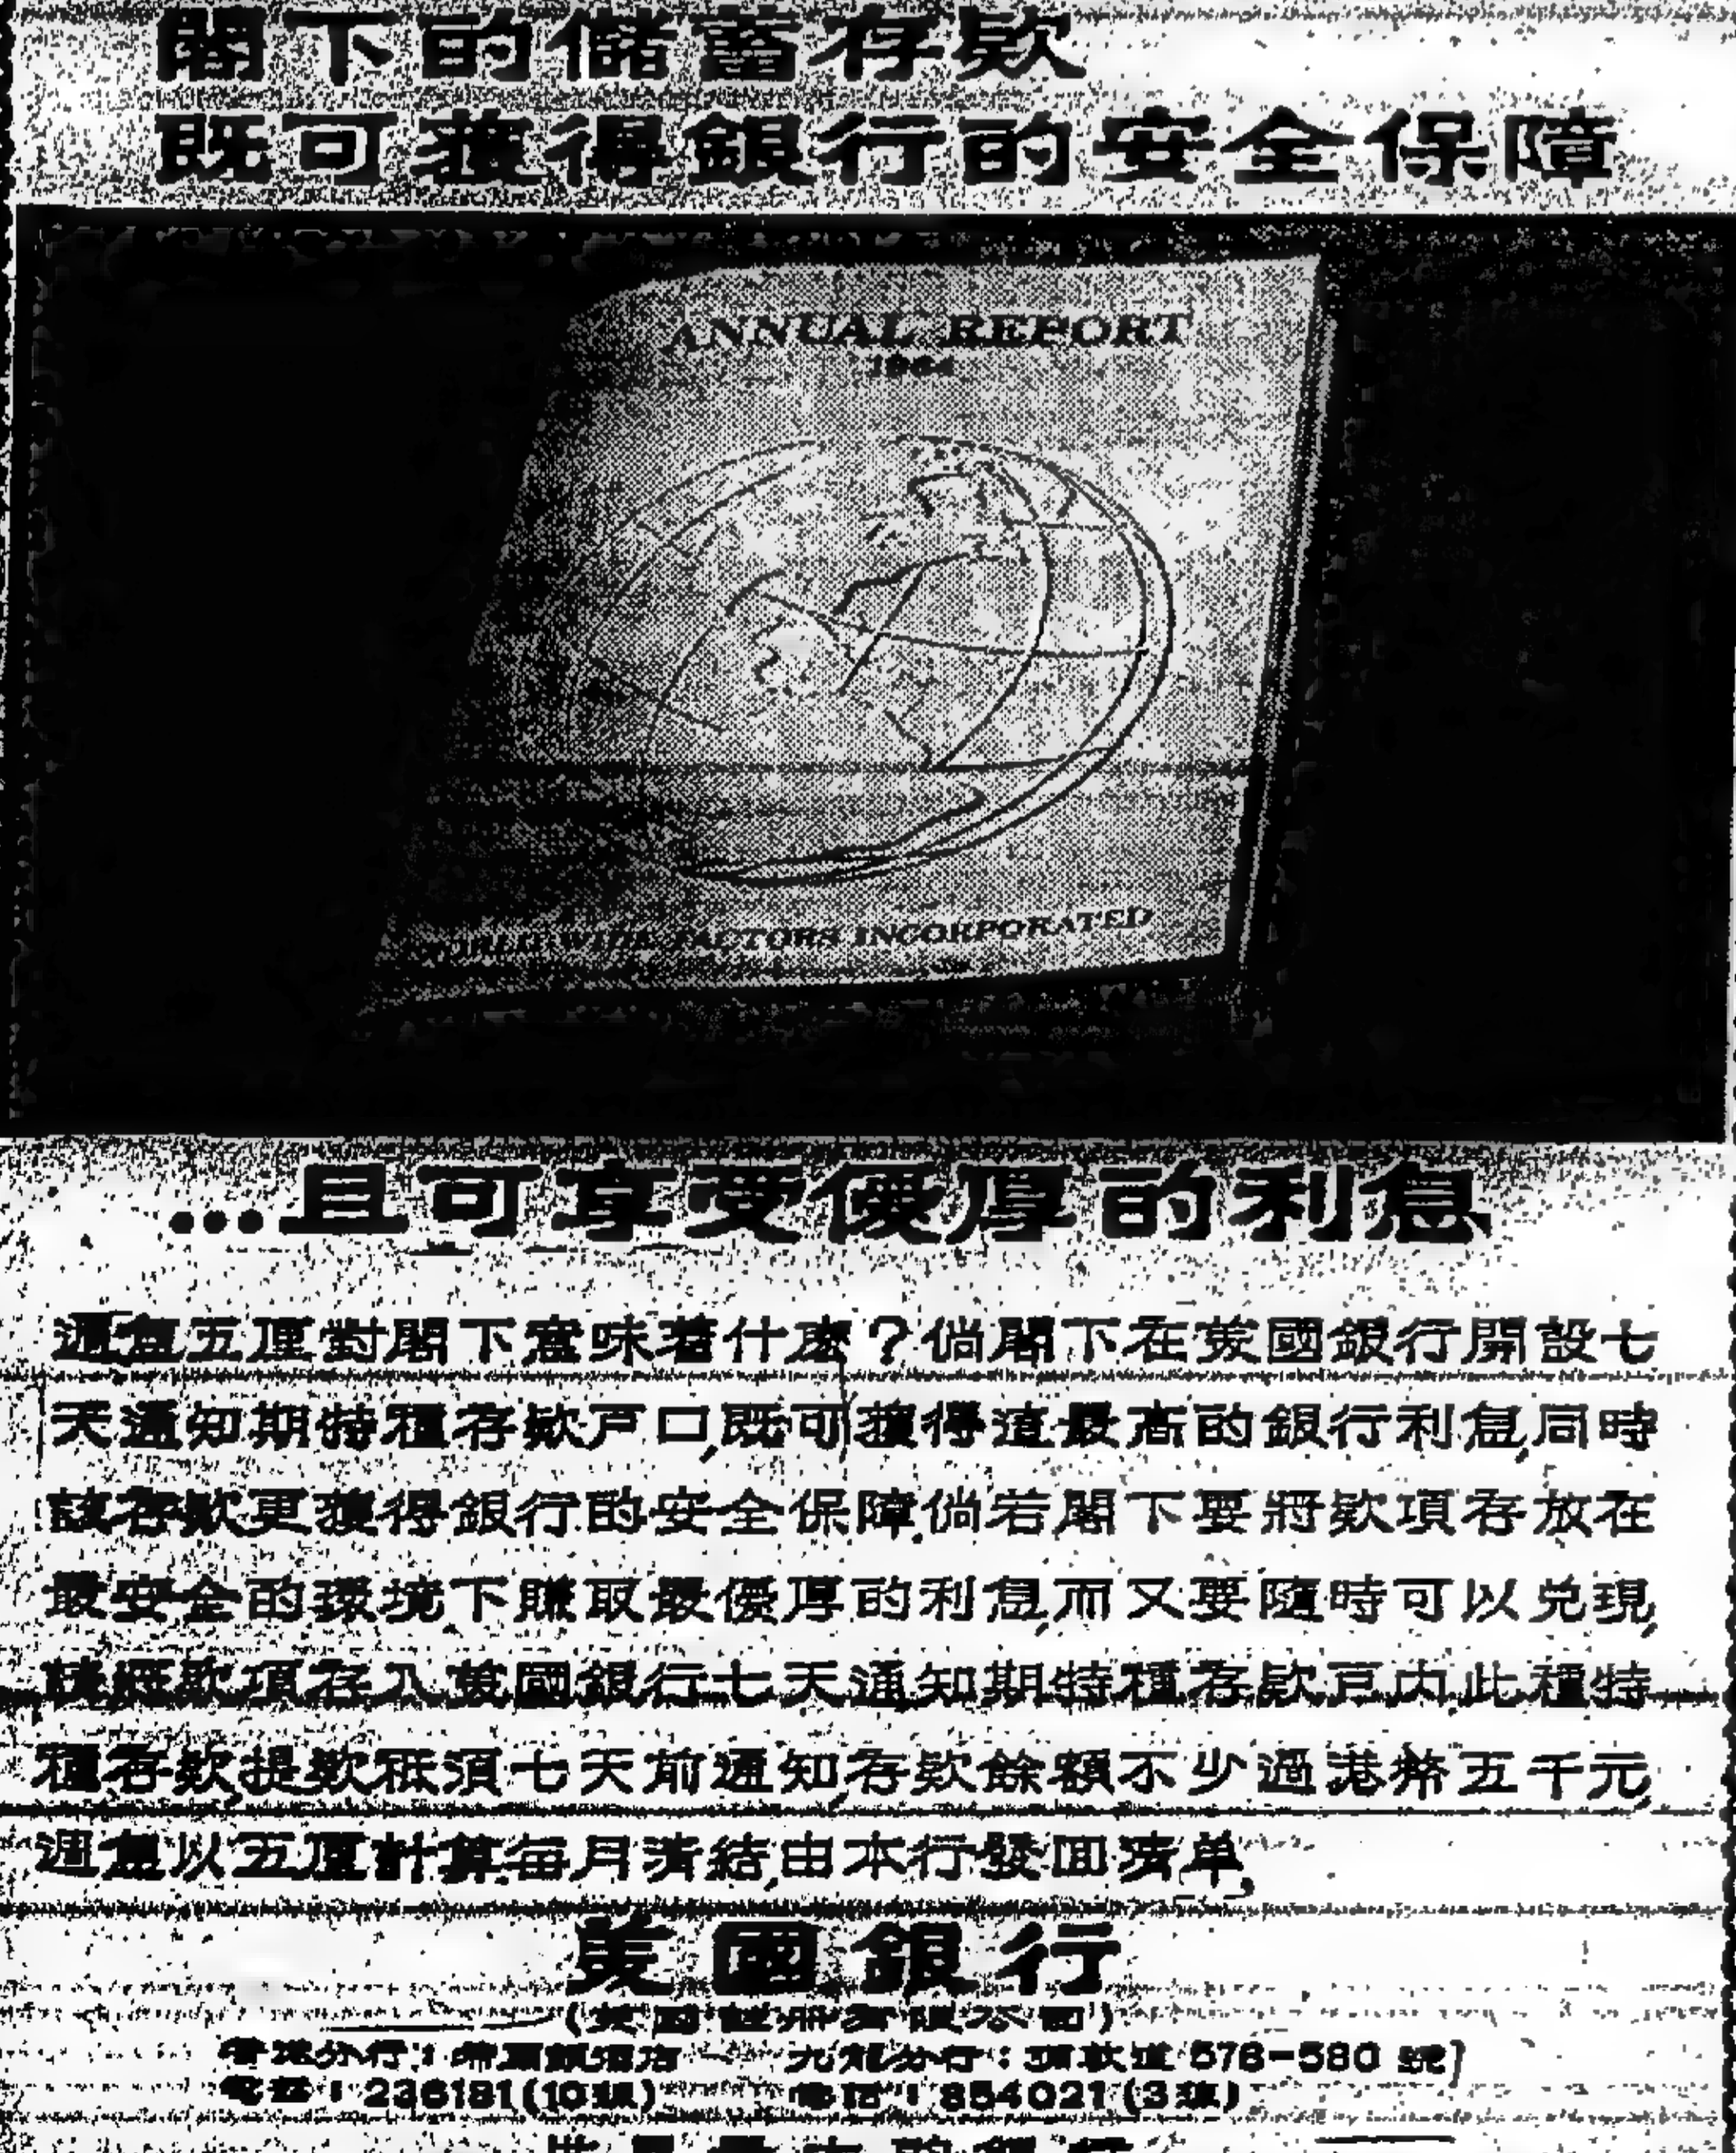 閣下的儲蓄存欵
既可獲得銀行的安全保障
ANNUAL REPORT
1964
WORLD WIDE FACTORS INCORPORATED
...且可享受優厚的利息
週息五厘對閣下意味着什麽？倘閣下在美國銀行開設七
天通知期特種存欵戸口,既可獲得這最高的銀行利息,同時
該存欵更獲得銀行的安全保障,倘若閣下要將欵項存放在
最安全的環境下賺取最優厚的利息,而又要隨時可以兑現,
請將欵項存入美國銀行七天通知期特種存欵戸内,此種特
種存欵,提欵祗須七天前通知,存欵餘額不少過港幣五千元,
週息以五厘計算,每月清結,由本行發回清单,
美國銀行
(美國註冊有限公司)
香港分行：希爾頓酒店 九龍分行：彌敦道 578-580 號
電話：236181(10線) 電話：854021(3線)